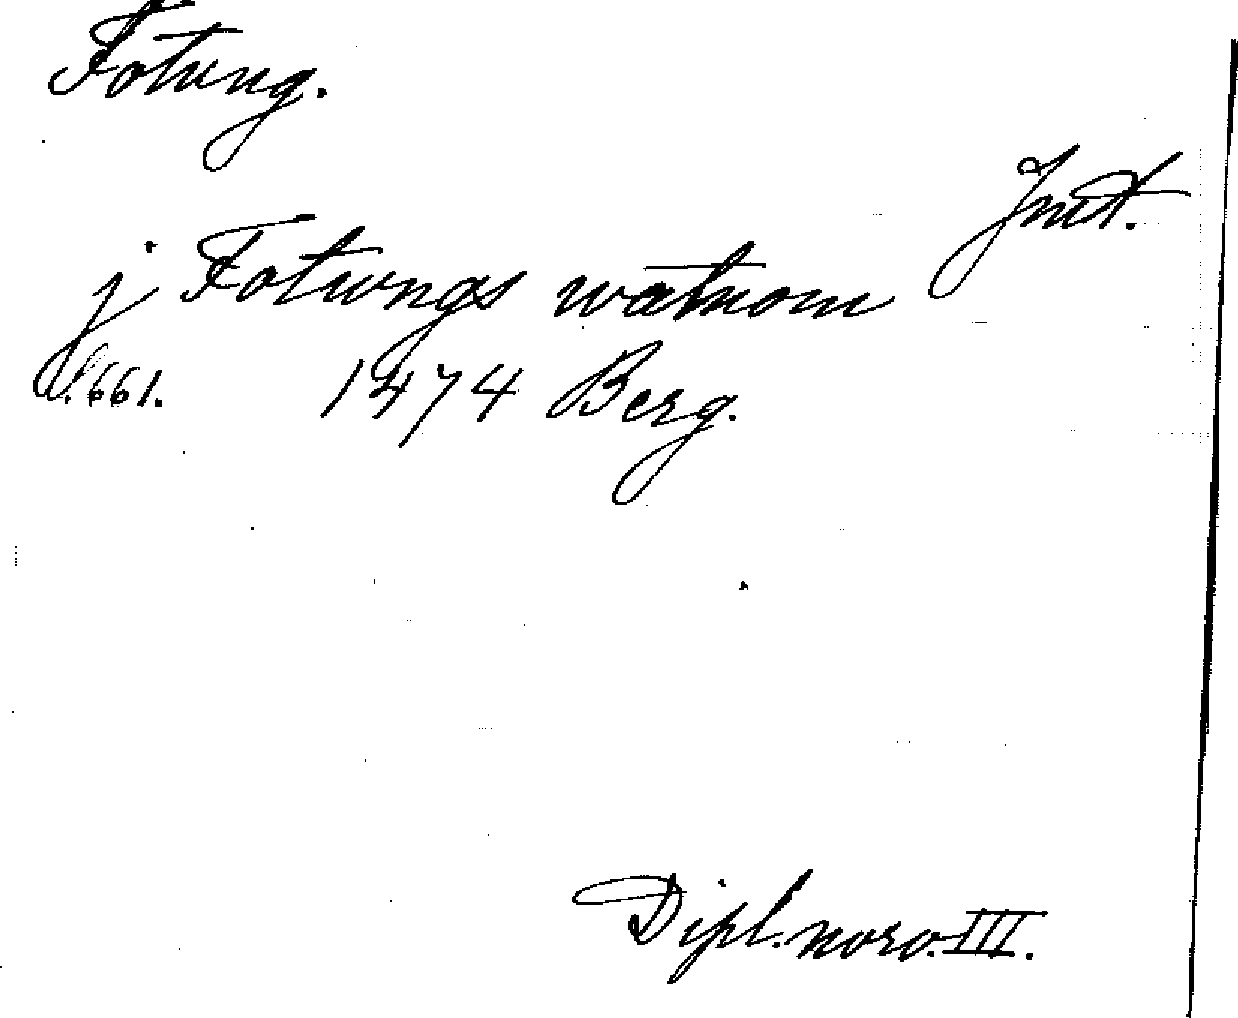 Fotvng.
Jmt.
j Fotvngs watnom
s. 661. 1474 Berg.
Dipl. norv. III.